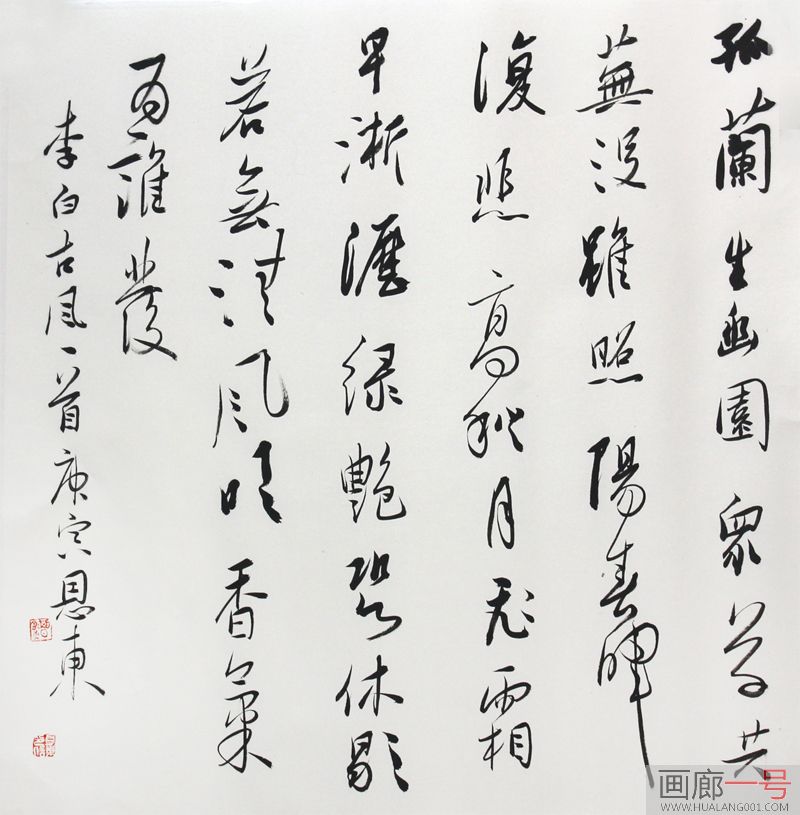 孤蘭生幽園衆草共
蕪没雖照陽春暉
復悲高秋月飛霜
早淅瀝緑艶恐休歇
若無清風吹香氣
為誰發
李白古風一首庚寅恩東
画廊一号
WWW.HUALANG001.COM